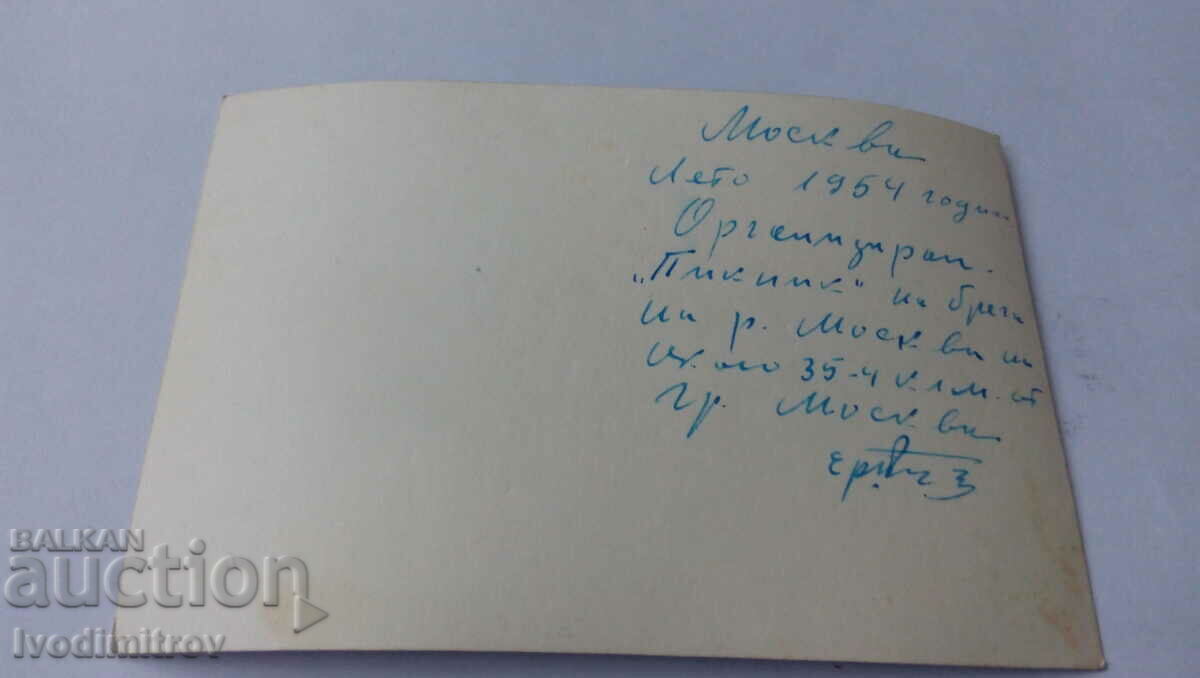 Москва
Лето 1954 година
Организиран
"Пикник" на брега
на р. Москва на
около 35-4 клм. от
гр. Москва
BALKAN
auction
Ivodimitrov